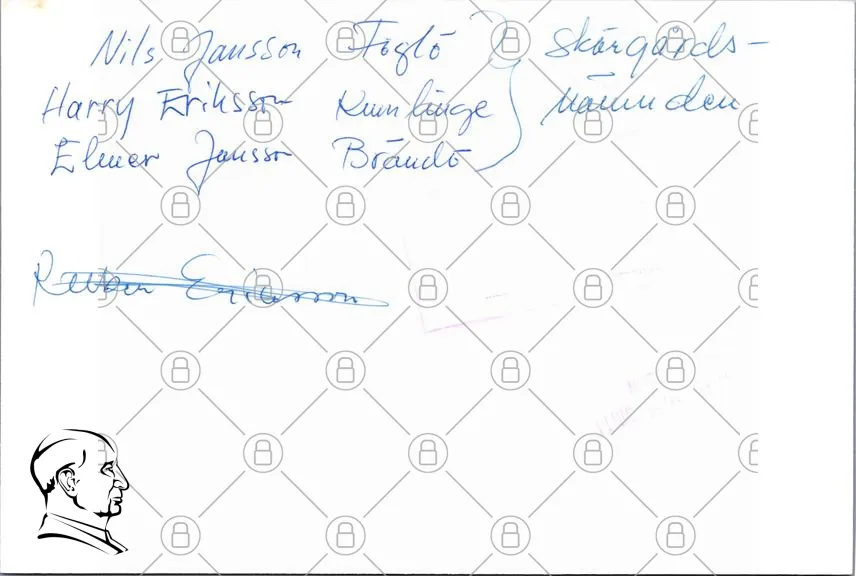 Nils Jansson Föglö } Skärgårds-
Harry Eriksson Kumlinge nämnden
Elmer Jansson Brändö
Ruben Ericsson